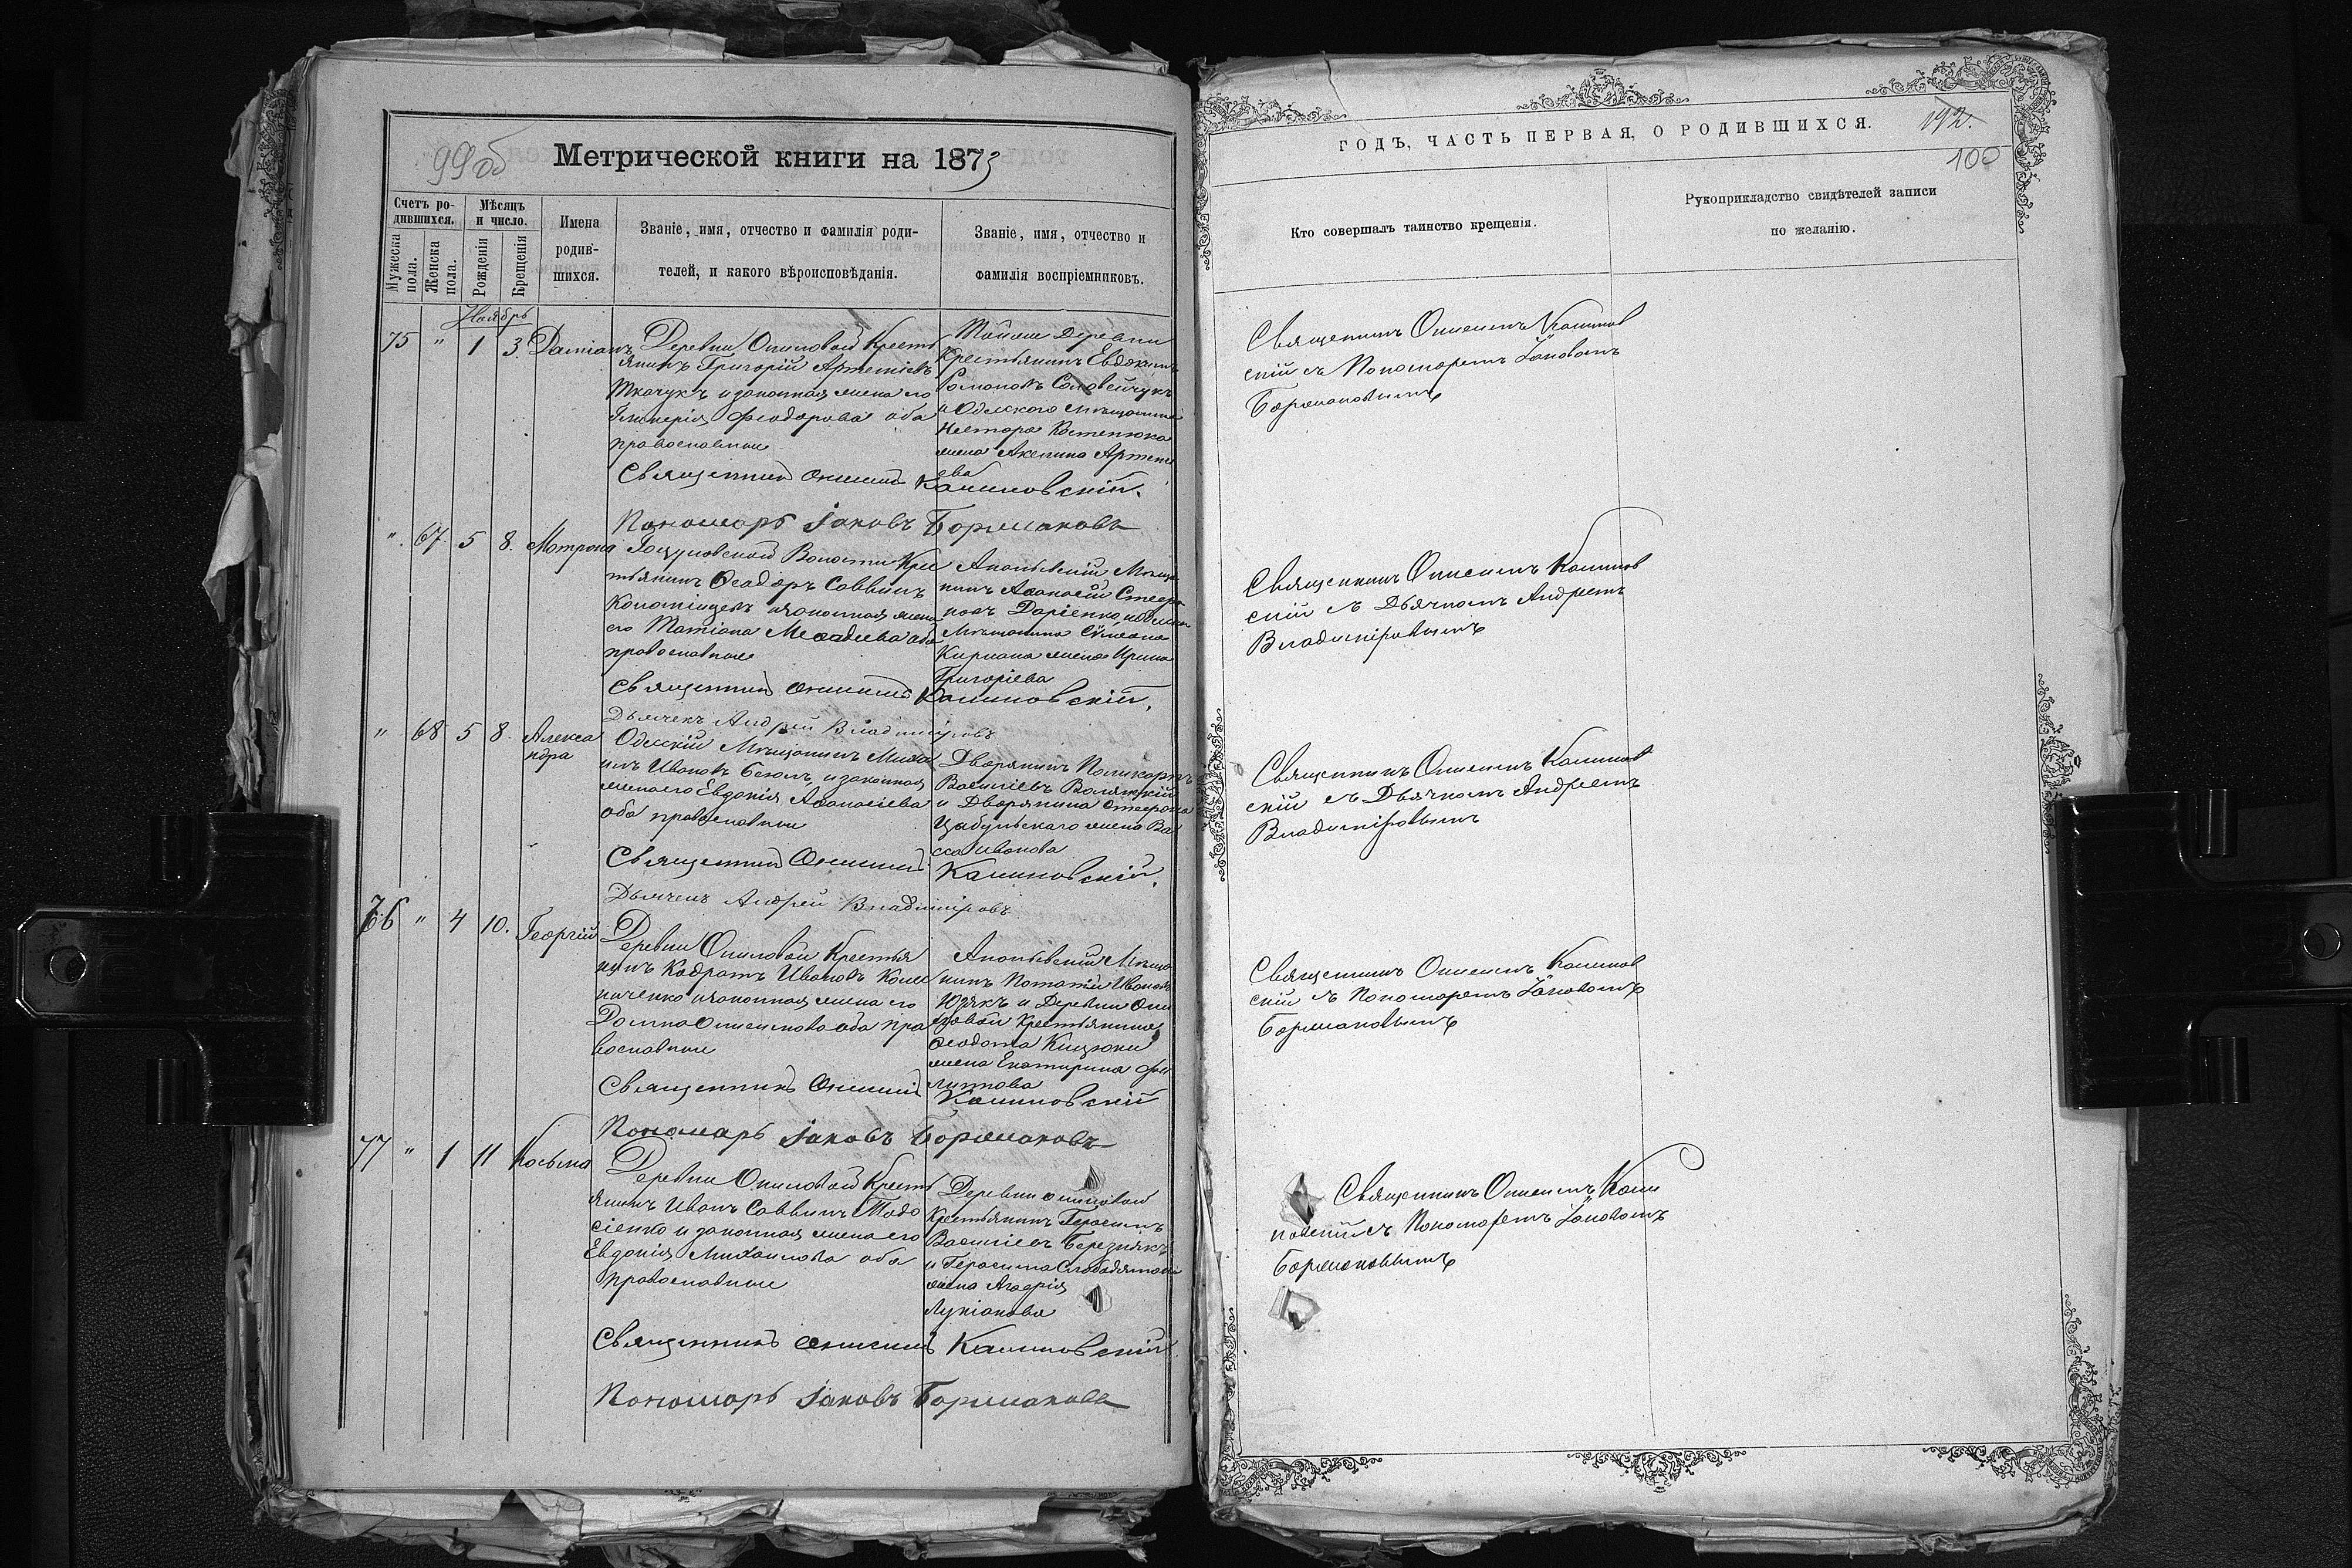 99 об
Метрической книги на 1873
Счетъ родившихся.
Мужеска пола.
Женска пола.
Мѣсяцъ и число.
Рожденія
Крещенія
Имена родившихся.
Званіе, имя, отчество и фамилія родителей, и какого вѣроисповѣданія.
Званіе, имя, отчество и фамилія воспріемниковъ.
Ноябрь
75 " 1 3. Даміанъ
Деревни Ониловой Кресть
янинъ Григорій Артеміевъ
Ткачукъ и законная жена его
Гликерія Феодорова оба
православные
Тойже деревни
Крестьянинъ Евдокимъ
Романовъ Соловейчукъ
и Одесского мѣщанина
Нестора Костенюка
жена Акилина Артемі
ева
Священникъ Онисимъ Калиновскій.
Пономарь Іаковъ Боржаковъ
". 67. 5 8. Мотрона
Волости Крес
тьянинъ Ѳеодоръ Саввинъ
Коломіецъ и законная жена
его Татіана оба
православные
Ананьевскій Мѣща
нинъ Аѳанасій Стефа
новъ
Мѣщанина Сѵмеона
жена Ирина
Григоріева
Священникъ Онисимъ Калиновскій.
Дьячекъ Андрей Владиміровъ
" 68 5 8. Алекса
ндра
Одесскій Мѣщанинъ Миха
илъ Ивановъ и законная
жена его Евдокія Аѳанасіева
оба православные
Дворянинъ Поликарпъ
Василіевъ
и Дворянина Стефана
Цыбульскаго жена Ва
сса Иванова
Священникъ Онисимъ Калиновскій.
Дьячекъ Андрей Владиміровъ
76 " 4 10. Георгій
Деревни Ониловой Крестья
нинъ Кодратъ Ивановъ Коле
ниченко и законная жена его
Домна Онисимова оба пра
вославные
Ананьевскій Мѣща
нинъ Потапій Ивановъ
и Деревни Они
ловой Крестьянина
Ѳеодота
жена Екатерина Фи
липпова
Священникъ Онисимъ Калиновскій
Пономарь Іаковъ Боржаковъ
77 " 1 11 Косьма
Деревни Ониловой Кресть
янинъ Иванъ Саввинъ Тодо
сіенко и законная жена его
Евдокія Михаилова оба
православные
Деревни Ониловой
Крестьянинъ Герасимъ
Василіевъ Березнякъ
и Герасима
жена Агафія
Лукіанова
Священникъ Онисимъ Калиновскій
Пономарь Іаковъ Боржаковъ
ГОДЪ, ЧАСТЬ ПЕРВАЯ, О РОДИВШИХСЯ.
192.
100
Кто совершалъ таинство крещенія.
Рукоприкладство свидѣтелей записи по желанію.
Священникъ Онисимъ Калинов
скій съ Пономаремъ Іаковомъ
Боржаковымъ
Священникъ Онисимъ Калинов
скій съ Дьячкомъ Андреемъ
Владиміровымъ
Священникъ Онисимъ Калинов
скій съ Дьячкомъ Андреемъ
Владиміровымъ
Священникъ Онисимъ Калинов
скій съ Пономаремъ Іаковомъ
Боржаковымъ
Священникъ Онисимъ Кали
новскій съ Пономаремъ Іаковомъ
Боржаковымъ